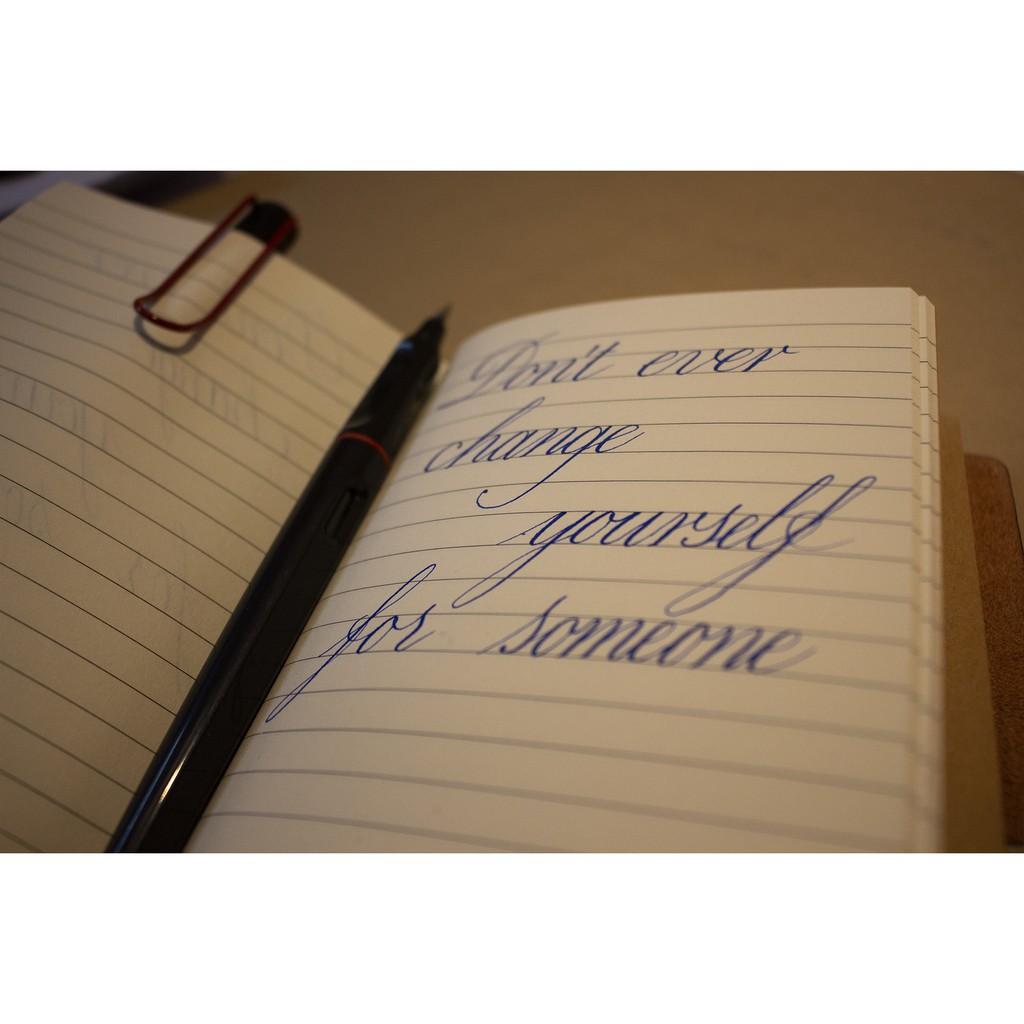 Don't ever
change
yourself
for someone